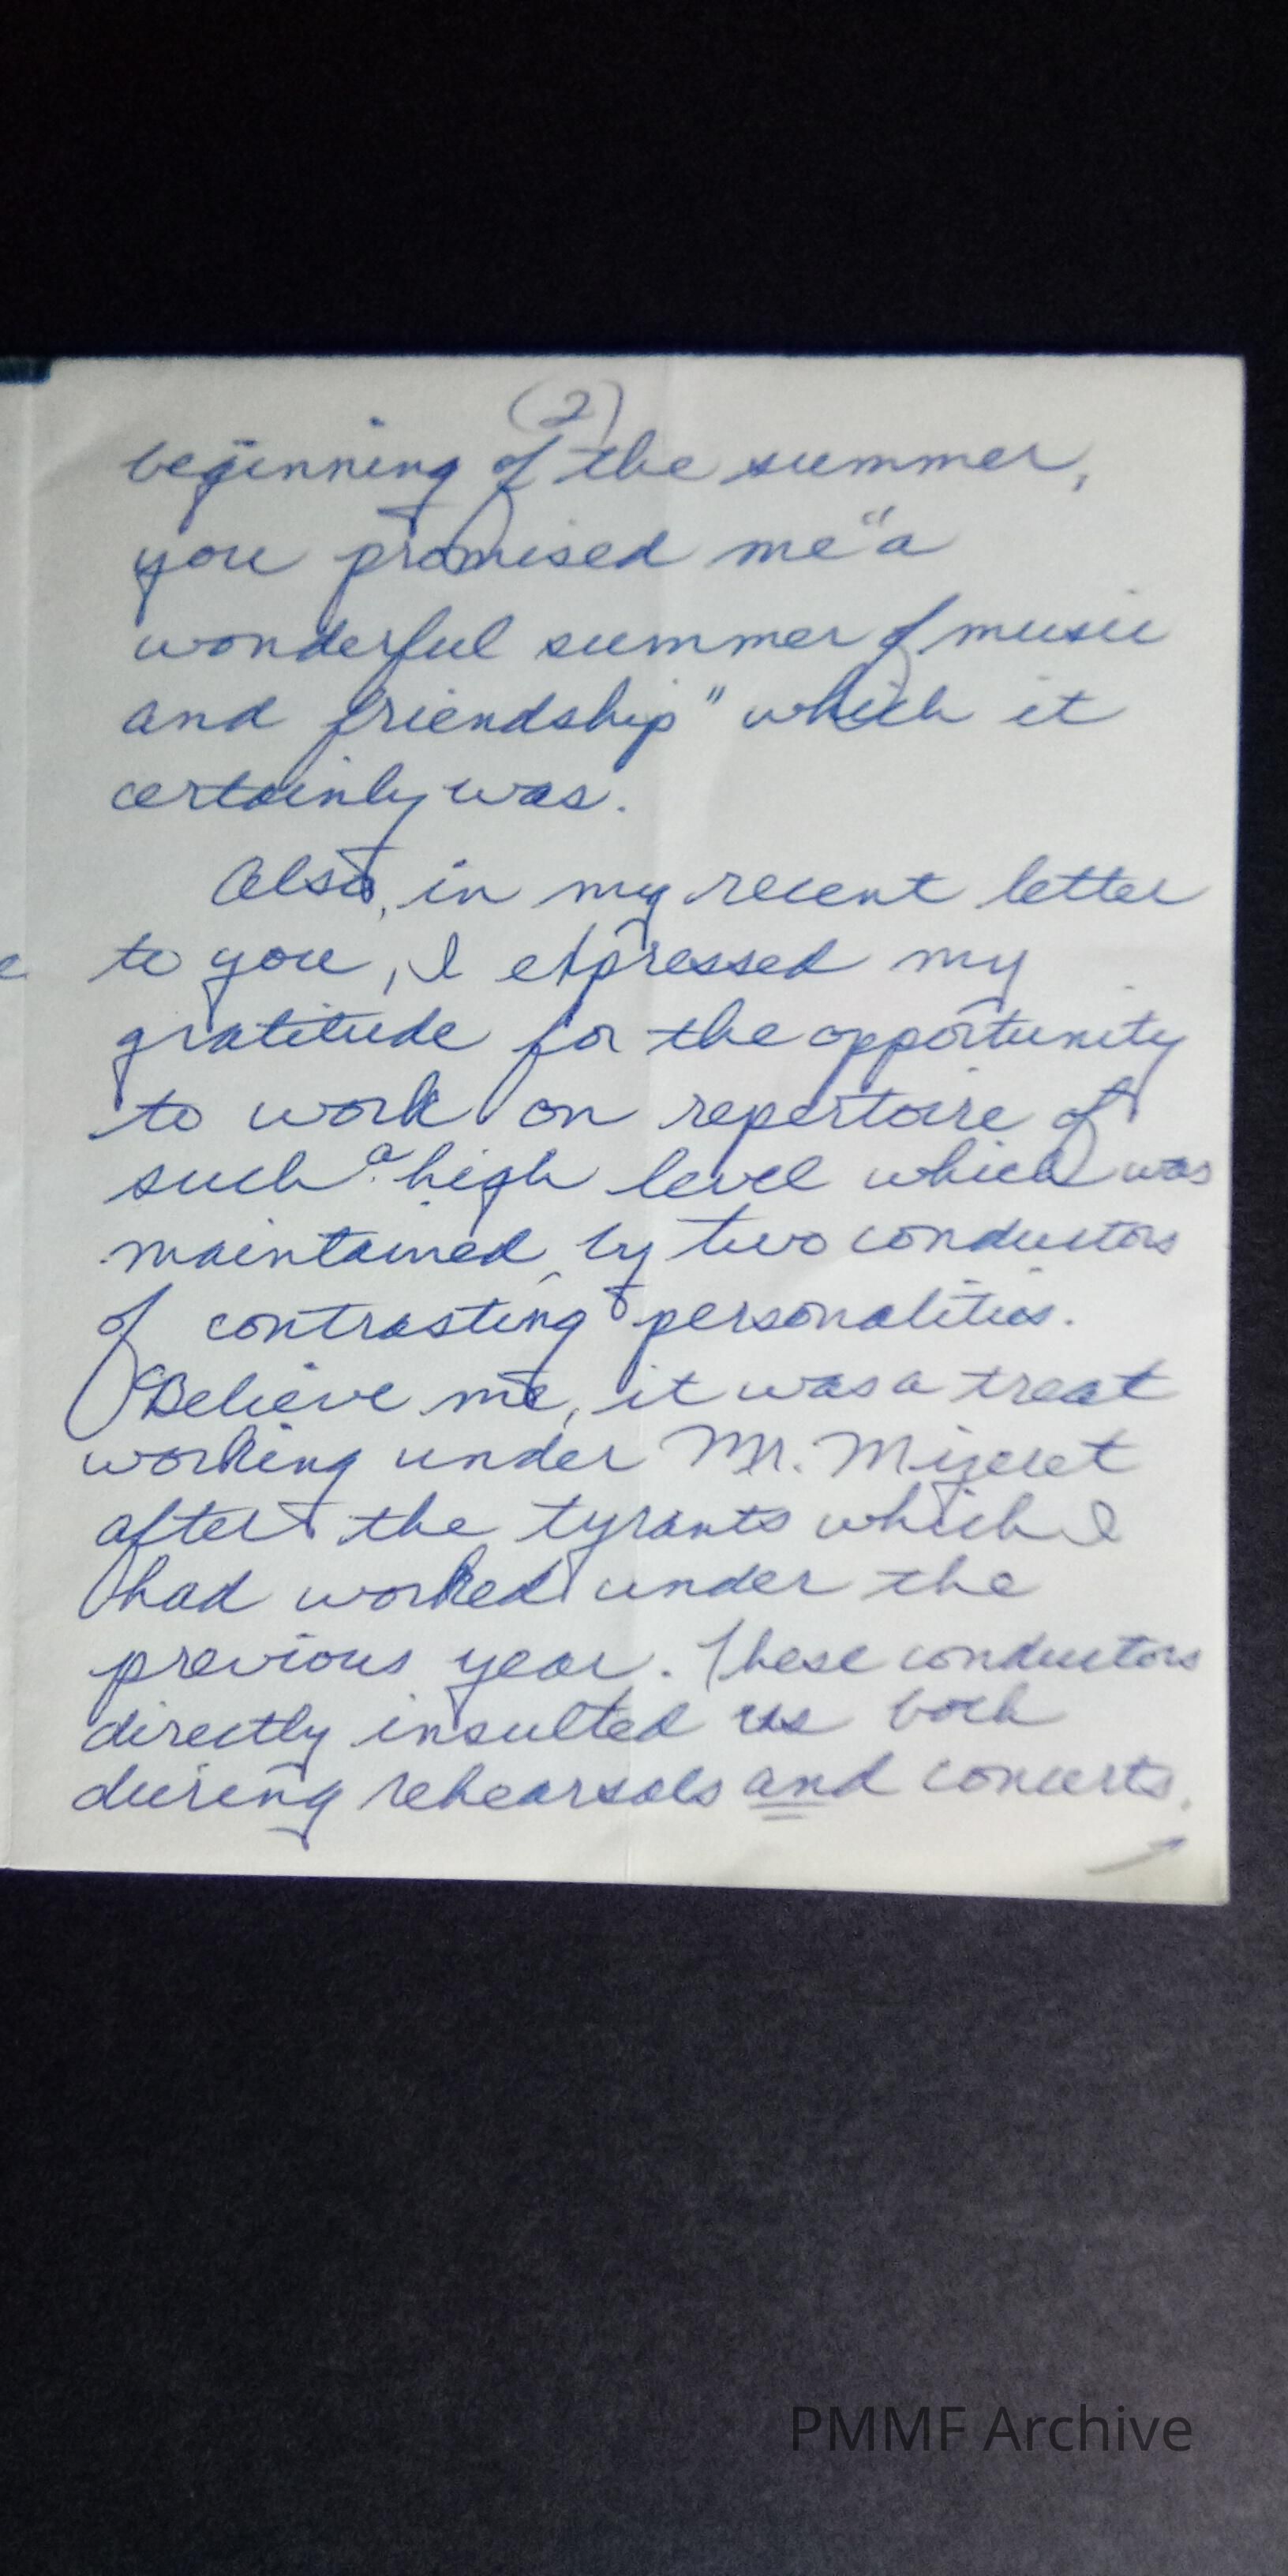 (2)
beginning of the summer,
you promised me "a
wonderful summer of music
and friendship" which it
certainly was.
Also, in my recent letter
to you, I expressed my
gratitude for the opportunity
to work on repertoire of
such a high level which was
maintained by two conductors
of contrasting personalities.
Believe me, it was a treat
working under Mr.
after the tyrants which I
had worked under the
previous year. These conductors
directly insulted us both
during rehearsals and concerts.
PMMF Archive